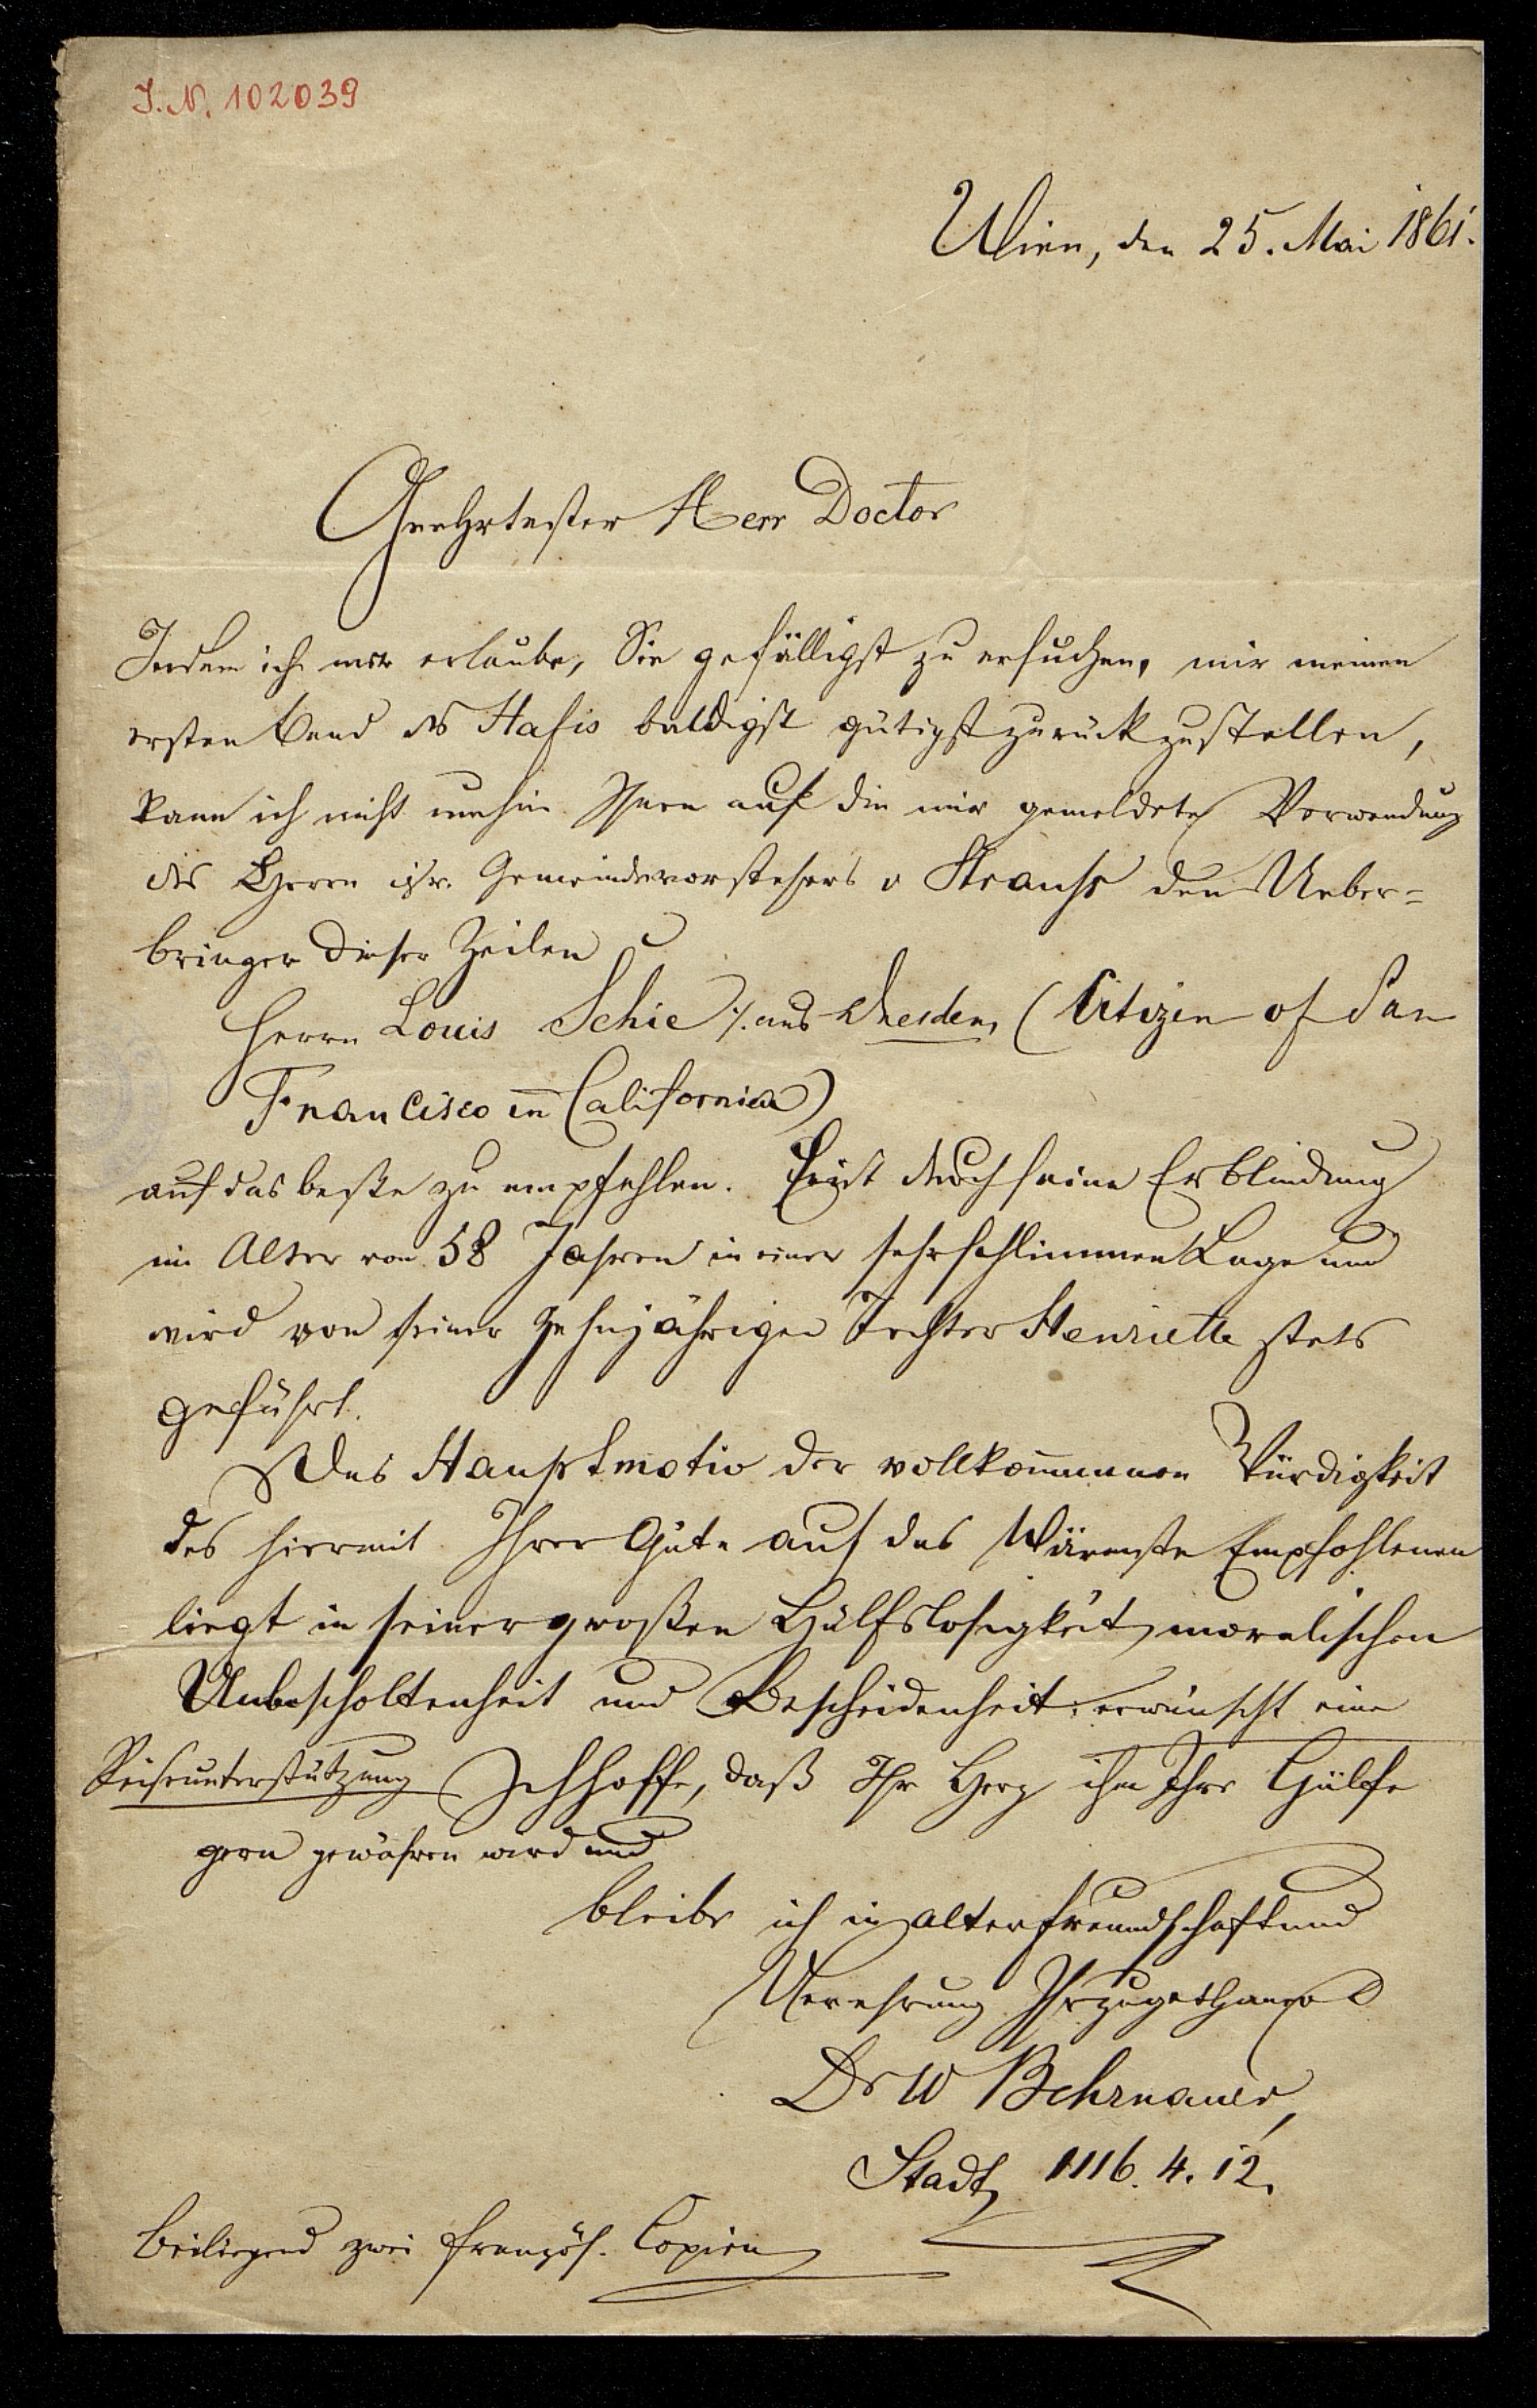 I.N. 102039
Wien, den 25. Mai 1861.
Geehrtester Herr Doctor
Indem ich mir erlaube, Sie gefälligst zu ersuchen, mir meinen
ersten Band des Hafis baldigst gütigst zurückzustellen,
kann ich nicht umhin Ihnen auf die mir gemeldete Verwendung
des Herrn isr. Gemeindevorstehers v Strauss den Ueber=
bringer dieser Zeilen
Herrn Louis Schie aus Dresden, (Citizen of San
Francisco in California)
auf das beste zu empfehlen. Er ist durch seine Erblindung
im Alter von 58 Jahren in einer sehr schlimmen Lage und
wird von seiner zehnjährigen Tochter Henriette stets
geführt.
Das Hauptmotiv der vollkommenen Würdigkeit
des hiermit Ihrer Güte auf das Wärmste Empfohlenen
liegt in seiner großen Hülfslosigkeit, moralischen
Unbescholtenheit und Bescheidenheit: erwünscht eine
Reiseunterstützung Ich hoffe, daß Ihr Herz ihm Ihre Hülfe
gern gewähren wird und
bleibe ich in alter Freundschaft und
Verehrung Ihr zugethaner
Dr W Behrnauer,
Stadt, 1116. 4. 12.
Beiliegend zwei französ. Copien